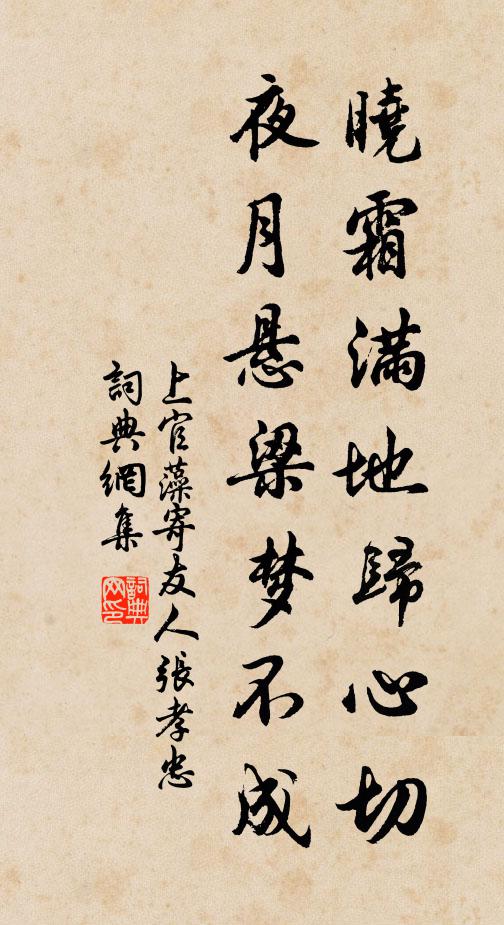 曉霜满地歸心切
夜月悬梁梦不成
上官藻寄友人張孝忠
詞典網集
詞典网印